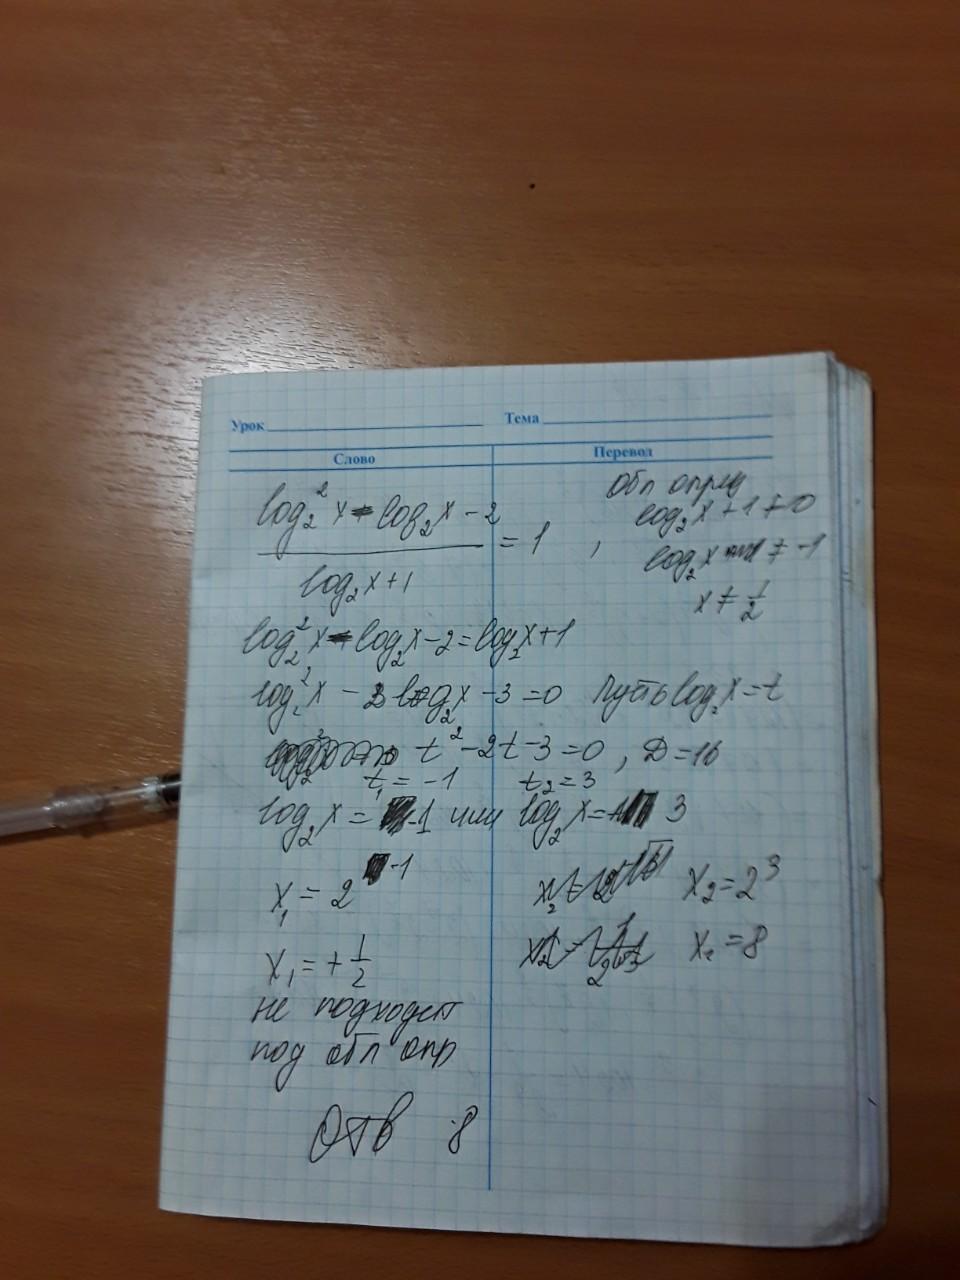 Урок Тема
Слово Перевод
log₂²x - log₂x - 2
= 1 ,
log₂x + 1
обл опред
log₂x + 1 ≠ 0
log₂x ≠ -1
x ≠ 1/2
log₂²x - log₂x - 2 = log₂x + 1
log₂²x - 2 log₂x - 3 = 0 пусть log₂x = t
t² - 2t - 3 = 0 , D = 16
t₁ = -1 t₂ = 3
log₂x = -1 или log₂x = 3
x₁ = 2⁻¹ x₂ = 2³
x₁ = + 1/2 x₂ = 8
не подходит
под обл опр
Отв 8